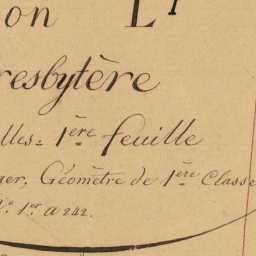 on Lʳ
resbytère
lles = 1ère feuille
ger, Géomètre de 1ère Classe
1er a 242.